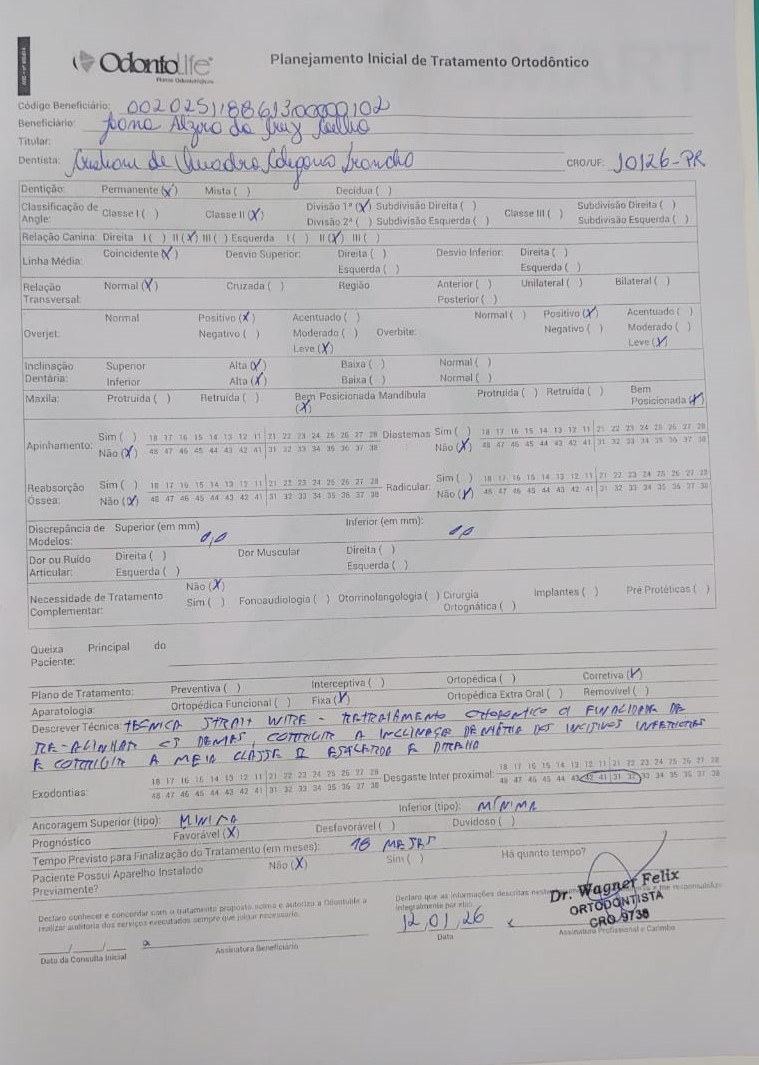 OdontoLife
Planos Odontológicos
Planejamento Inicial de Tratamento Ortodôntico
Código Beneficiário: 00202511886130000102
Beneficiário: Joana da Cruz Coelho
Titular:
Dentista: de Quadro CRO/UF: 10126-PR
Dentição: Permanente (X) Mista ( ) Decídua ( )
Classificação de Angle: Classe I ( ) Classe II (X) Divisão 1ª (X) Subdivisão Direita ( ) Classe III ( ) Subdivisão Direita ( )
Divisão 2ª ( ) Subdivisão Esquerda ( ) Subdivisão Esquerda ( )
Relação Canina: Direita I ( ) II (X) III ( ) Esquerda I ( ) II (X) III ( )
Linha Média: Coincidente (X) Desvio Superior: Direita ( ) Desvio Inferior: Direita ( )
Esquerda ( ) Esquerda ( )
Relação Transversal: Normal (X) Cruzada ( ) Região Anterior ( ) Unilateral ( ) Bilateral ( )
Posterior ( )
Overjet: Normal Positivo (X) Acentuado ( ) Overbite: Normal ( ) Positivo (X) Acentuado ( )
Negativo ( ) Moderado ( ) Negativo ( ) Moderado ( )
Leve (X) Leve (X)
Inclinação Dentária: Superior Alta (X) Baixa ( ) Normal ( )
Inferior Alta (X) Baixa ( ) Normal ( )
Maxila: Protruída ( ) Retruída ( ) Bem Posicionada (X) Mandíbula Protruída ( ) Retruída ( ) Bem Posicionada (X)
Apinhamento: Sim ( ) 18 17 16 15 14 13 12 11 21 22 23 24 25 26 27 28 Diastemas Sim ( ) 18 17 16 15 14 13 12 11 21 22 23 24 25 26 27 28
Não (X) 48 47 46 45 44 43 42 41 31 32 33 34 35 36 37 38 Não (X) 48 47 46 45 44 43 42 41 31 32 33 34 35 36 37 38
Reabsorção Óssea: Sim ( ) 18 17 16 15 14 13 12 11 21 22 23 24 25 26 27 28 Radicular: Sim ( ) 18 17 16 15 14 13 12 11 21 22 23 24 25 26 27 28
Não (X) 48 47 46 45 44 43 42 41 31 32 33 34 35 36 37 38 Não (X) 48 47 46 45 44 43 42 41 31 32 33 34 35 36 37 38
Discrepância de Modelos: Superior (em mm) 0,0 Inferior (em mm): 0,0
Dor ou Ruído Articular: Direita ( ) Dor Muscular Direita ( )
Esquerda ( ) Esquerda ( )
Necessidade de Tratamento Complementar: Não (X)
Sim ( ) Fonoaudiologia ( ) Otorrinolangologia ( ) Cirurgia Ortognática ( ) Implantes ( ) Pré Protéticas ( )
Queixa Principal do Paciente:
Plano de Tratamento: Preventiva ( ) Interceptiva ( ) Ortopédica ( ) Corretiva (X)
Aparatologia: Ortopédica Funcional ( ) Fixa (X) Ortopédica Extra Oral ( ) Removível ( )
Descrever Técnica: TÉCNICA STRAIT WIRE - RETRATAMENTO ORTODONTICO C/ FINALIDADE DE
RE-ALINHAR OS DEMAS, CORRIGIR A INCLINAÇÃO DOS INCISIVOS INFERIORES
E CORRIGIR A MEIA CLASSE II ESQUERDA E DIREITA
Exodontias: 18 17 16 15 14 13 12 11 21 22 23 24 25 26 27 28 Desgaste Inter proximal: 18 17 16 15 14 13 12 11 21 22 23 24 25 26 27 28
48 47 46 45 44 43 42 41 31 32 33 34 35 36 37 38 48 47 46 45 44 43 42 41 31 32 33 34 35 36 37 38
Ancoragem Superior (tipo): MINIMA Inferior (tipo): MÍNIMA
Prognóstico Favorável (X) Desfavorável ( ) Duvidoso ( )
Tempo Previsto para Finalização do Tratamento (em meses): 18 MESES
Paciente Possui Aparelho Instalado Previamente? Não (X) Sim ( ) Há quanto tempo?
Declaro conhecer e concordar com o tratamento proposto acima e autorizar a Odontolife a
realizar auditoria dos serviços executados sempre que julgar necessário.
Declaro que as informações descritas neste e me responsabilizo
integralmente por elas.
12/01/26
Dr. Wagner Felix
ORTODONTISTA
CRO 9738
Data da Consulta Inicial Assinatura Beneficiário Data Assinatura Profissional e Carimbo